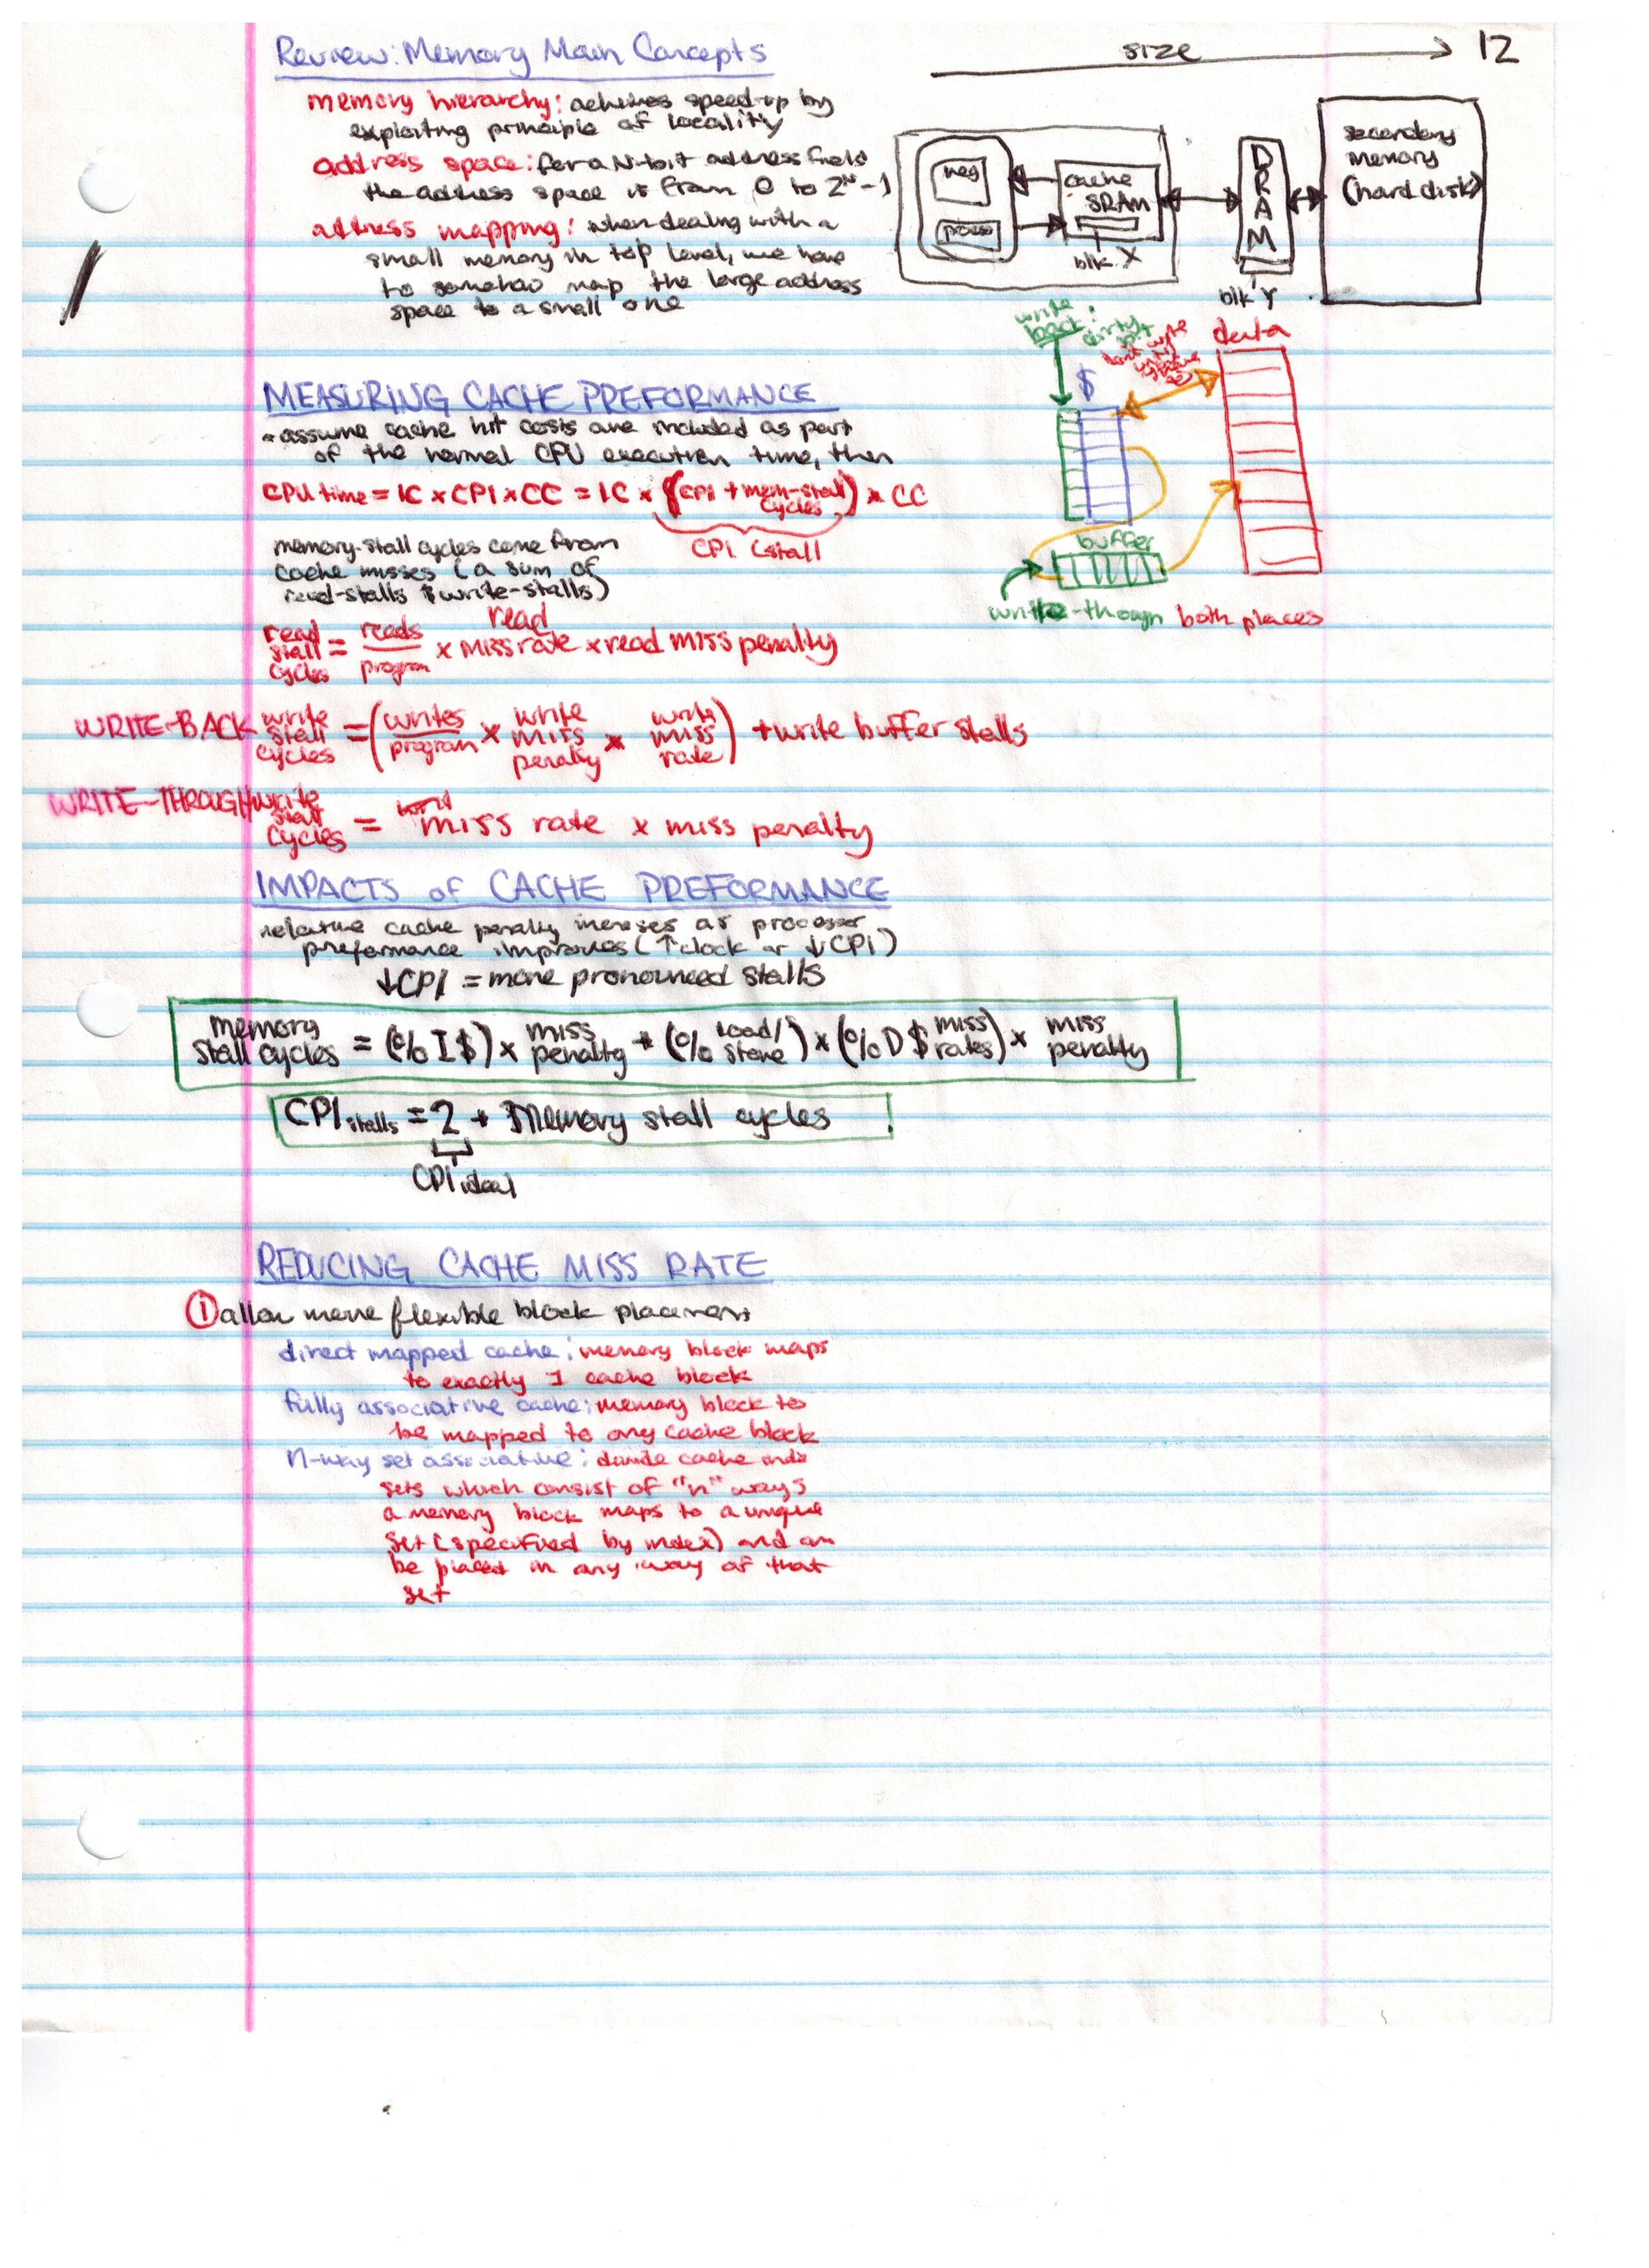 Review: Memory Main Concepts
size 12
memory hierarchy: acheives speed-up by
exploiting principle of locality
address space: for a N-bit address field
the address space is from 0 to 2^N-1
address mapping: when dealing with a
small memory in top level, we have
to somehow map the large address
space to a small one
reg
cache
SRAM
blk X
DRAM
blk Y
secondary
memory
(hard disk)
write
back:
dirty
bit
data
$
buffer
write-though both places
MEASURING CACHE PREFORMANCE
-assume cache hit costs are included as part
of the normal CPU execution time, then
CPU time = IC x CPI x CC = IC x (CPI + mem-stall cycles) x CC
CPI (stall
memory-stall cycles come from
cache misses (a sum of
read-stalls & write-stalls)
read stall cycles = reads/program x read miss rate x read miss penalty
WRITE-BACK write stall cycles = (writes/program x write miss penalty x write miss rate) + write buffer stalls
WRITE-THROUGH write stall cycles = miss rate x miss penalty
IMPACTS of CACHE PREFORMANCE
relative cache penalty increses as processor
preformance improves (↑clock or ↓CPI)
↓CPI = more pronounced stalls
memory stall cycles = (% I$) x miss penalty + (% load/store) x (% D$ miss rates) x miss penalty
CPI stalls = 2 + Memory stall cycles
CPI ideal
REDUCING CACHE MISS RATE
① allow more flexible block placement
direct mapped cache: memory block maps
to exactly 1 cache block
fully associative cache: memory block to
be mapped to any cache block
n-way set associative: divide cache into
sets which consist of "n" ways
a memory block maps to a unique
set (specified by index) and can
be placed in any way of that
set